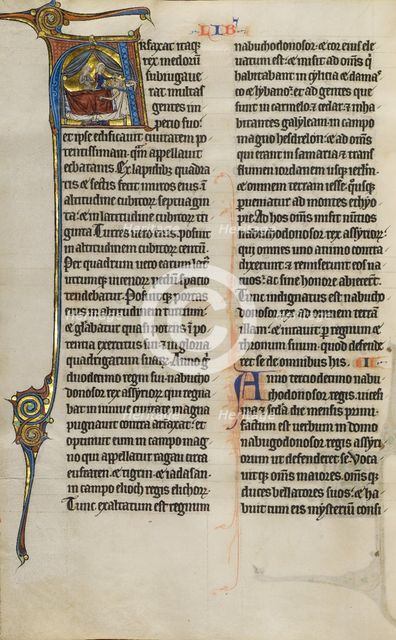 LIB'
Arfaxat itaq;
rex medorum
subiugaue
rat multas
gentes im
perio suo.
et ipse edificauit ciuitatem po
tentissimam quam appellauit
ecbatanis. Ex lapidibus quadra
tis et sectis fecit muros eius in
altitudine cubitorum septuagin
ta. et in latitudine cubitorum tri
ginta. Turres uero eius posuit
in altitudinem cubitorum centum.
Per quadrum uero earum lat
utrumque uicenorum pedum spacio
tendebatur. Posuitque portas
eius in altitudinem turrium.
et glabatur quasi potens in po
tentia exercitus sui et in gloria
quadrigarum suarum. Anno igitur
duodecimo regni sui nabucho
donosor rex assyriorum qui regna
bat in niniue ciuitate magna
pugnauit contra arfaxat. et
optinuit eum in campo mag
no qui appellatur ragau circa
eufraten et tigrin et iadasan
in campo elioch regis elichorum.
Tunc exaltatum est regnum
nabuchodonosor. et cor eius ele
uatum est. et misit ad omnes qui
habitabant in cylicia et dama
co et lybano. et ad gentes que
sunt in carmelo et cedar. et inha
bitantes galyleam in campo
magno hesdrelon. et ad omnes
qui erant in samaria et trans
flumen iordanem usque ierlm.
et omnem terram iesse quousque
pueniatur ad montes ethyo
pie. Ad hos omnes misit nuncios
nabuchodonosor rex assyriorum.
qui omnes uno animo contra
dixerunt. et remiserunt eos ua
cuos. ac sine honore abierunt.
Tunc indignatus est nabucho
donosor rex ad omnem terram
illam. et iurauit per regnum et
thronum suum quod defende
ret se de omnibus his. II
Anno terciodecimo nabu
chodonosor regis. uicesi
ma secunda die mensis primi
factum est uerbum in domo
nabugodonosor regis assyri
orum ut defenderet se. Voca
uitque omnes maiores. omnesque
duces bellatores suos. et ha
buit cum eis mysterium consi